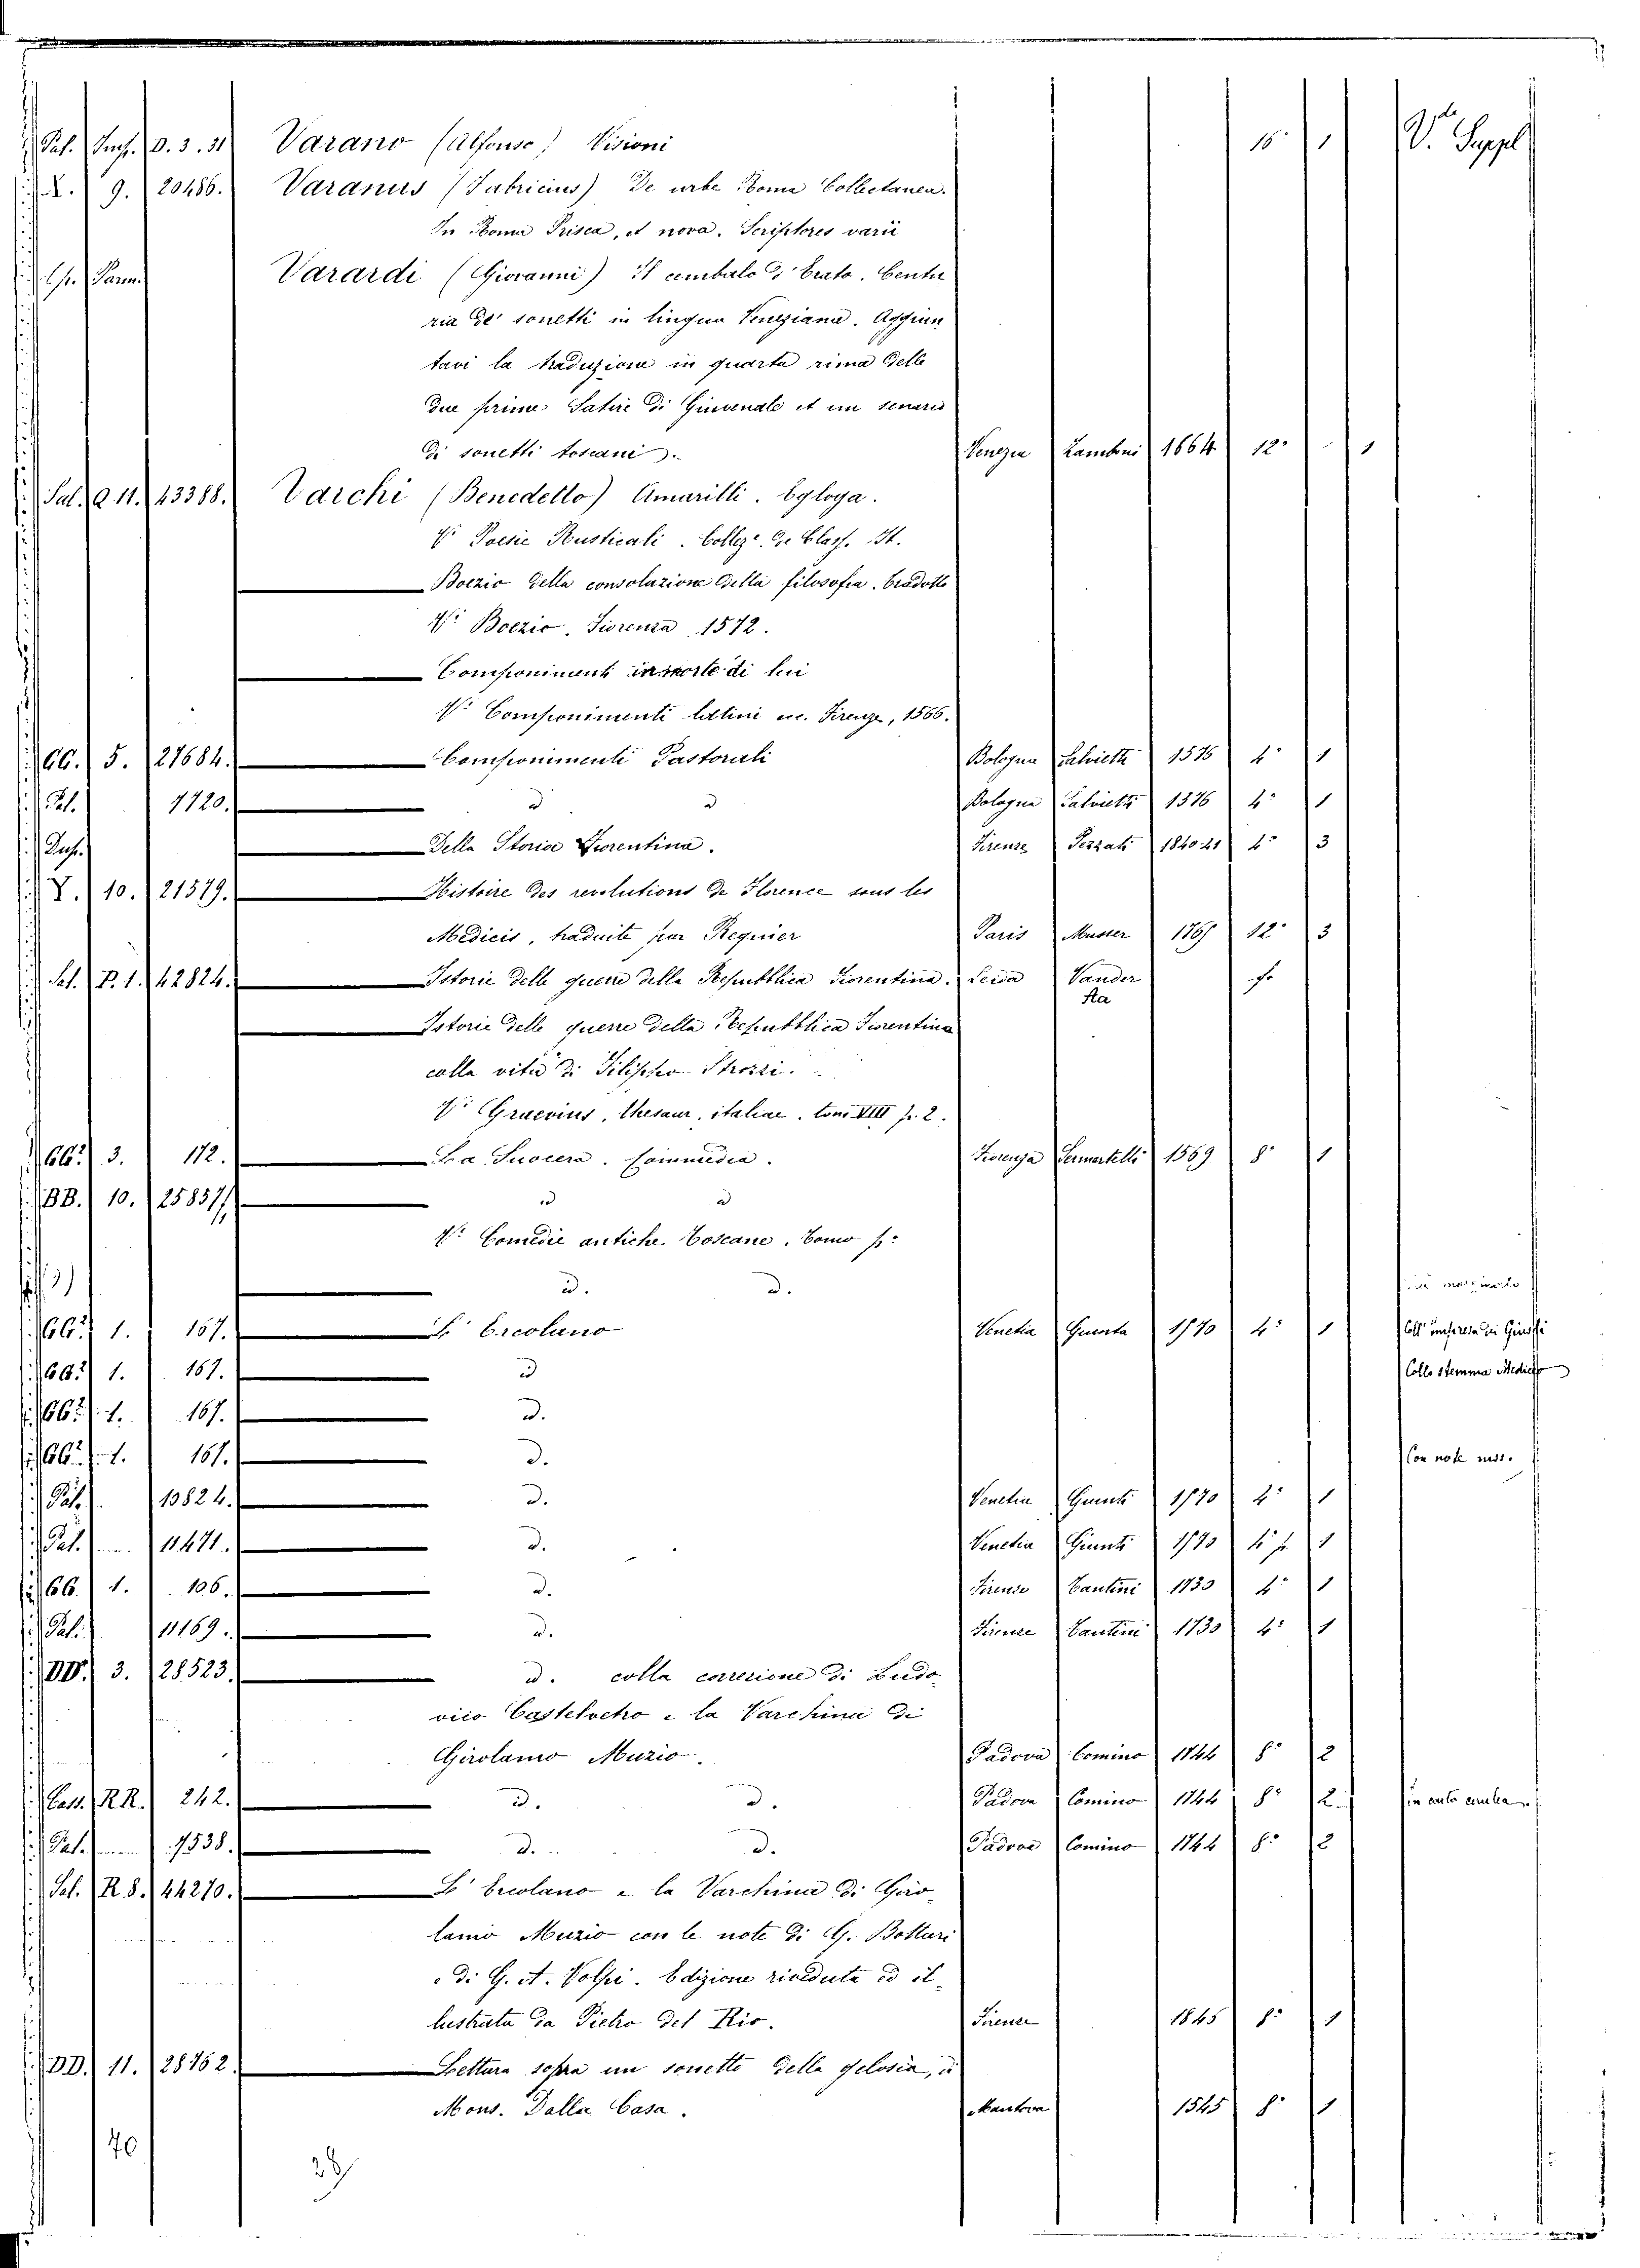 Pal. D. 3. 31 Varano (Alfonso) Visioni 16° 1 V. Suppl
9. 20486. Varanus (Fabricius) De urbe Roma Collectanea.
In Roma Prisca, et nova. Scriptores varii
Varardi (Giovanni) Il cembalo d' Erato. Centu
ria de' sonetti in lingua Veneziana. Aggiun
tavi la traduzione in quarta rima delle
due prime Satire di Giuvenale et un
di sonetti toscani. Venezia Zamboni 1664 12° 1
Sal. Q 11. 43388. Varchi (Benedetto) Amarilli. Egloga.
V. Poesie Rusticali. Collez. de Class. It.
Boezio della consolazione della filosofia. tradotto
V. Boezio. Fiorenza 1572.
Componimenti in morte di lui
V. Componimenti latini ec. Firenze, 1566.
CC. 5. 27684. Componimenti Pastorali Bologna Salvietti 1576 4° 1
Pal. 7720. d d Bologna Salvietti 1576 4° 1
Della Storia Fiorentina. Firenze Pezzati 1840-41 4° 3
Y. 10. 21579. Histoire des revolutions de Florence sous les
Medicis, traduite par Requier Paris Musier 1765 12° 3
Sal. P. 1. 42824. Istorie delle guerre della Repubblica Fiorentina. Leida Vander fo
Aa
Istorie delle guerre della Repubblica Fiorentina
colla vita di Filippo Strozzi.
V. Graevius, thesaur. italiae. tom VIII p. 2.
CC.² 3. 172. La Suocera. Commedia. Fiorenza Sermartelli 1569 8° 1
BB. 10. 25857 d d
V. Comedie antiche Toscane. Tomo
d. d. marginale
CC.² 1. 167. L' Ercolano Venetia Giunta 1570 4° 1
CC.² 1. 167. d Collo stemma Mediceo
CC.² 1. 167. d.
CC.² 1. 167. d. Con note mss.
Pal. 10824. d. Venetia Giunti 1570 4° 1
Pal. 11471. d. Venetia Giunti 1570 4° 1
CC. 1. 106. d. Firenze Tantini 1730 4° 1
Pal. 11169. d. Firenze Tantini 1730 4° 1
DD. 3. 28523. d. colla correzione di Ludo
vico Castelvetro e la Varchina di
Girolamo Muzio. Padova Comino 1744 8° 2
Cass. RR. 242. d. d. Padova Comino 1744 8° 2
Pal. 7538. d. d. Padova Comino 1744 8° 2
Sal. R 8. 44270. L' Ercolano e la Varchina di Giro-
lamo Muzio con le note di G. Bottari
e di G. A. Volpi. Edizione riveduta ed il-
lustrata da Pietro dal Rio. Firenze 1845 8° 1
DD. 11. 28762. Lettura sopra un sonetto della gelosia, di
Mons. Dalla Casa. Mantova 1545 8° 1
40
28